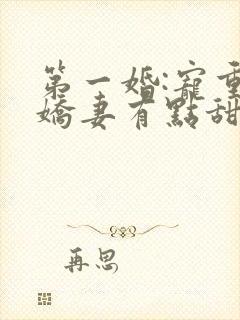 第一婚:寵
嬌妻有點甜
再思